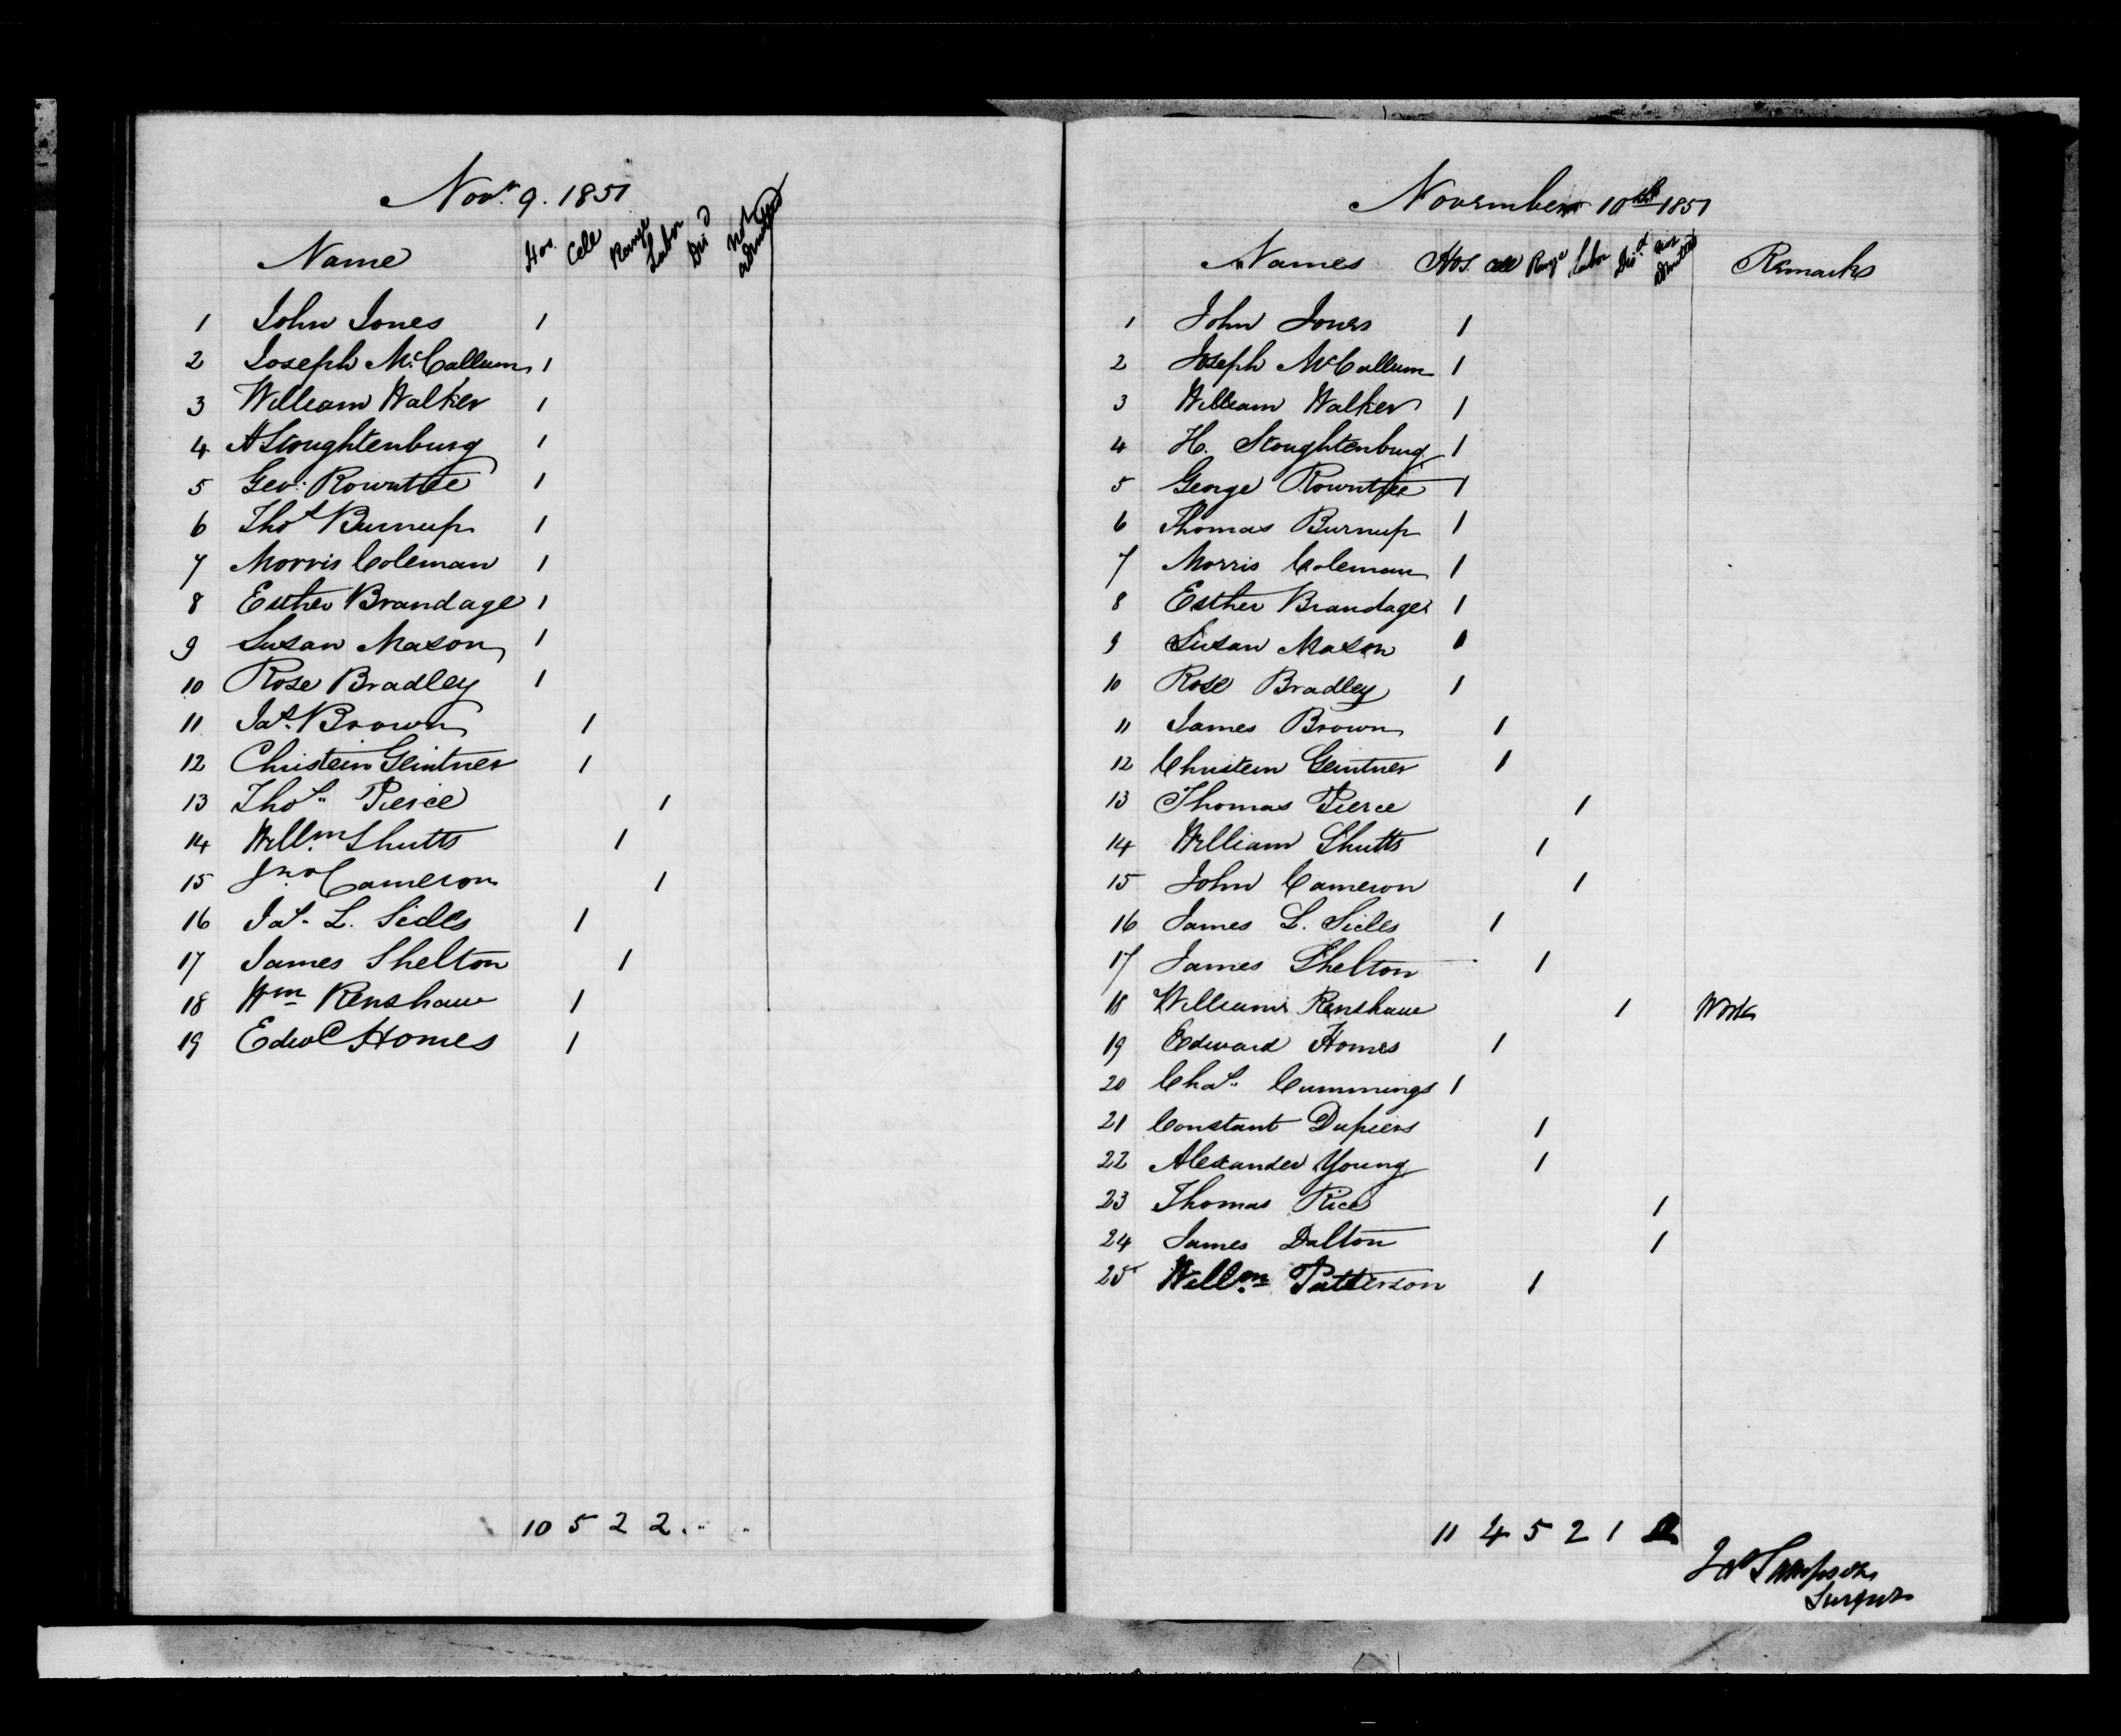 Novr. 9. 1851
Name Hos. Cell Range Labor Disd Not admitted
1 John Jones 1
2 Joseph McCallum 1
3 William Walker 1
4 H Stoughtenburg 1
5 Geo: Rowntree 1
6 Thos Burnup 1
7 Morris Coleman 1
8 Esther Brandage 1
9 Susan Mason 1
10 Rose Bradley 1
11 Jas. Brown 1
12 Christein Geintner 1
13 Thos. Pierce 1
14 Willm Shutts 1
15 Jno Cameron 1
16 Jas. L. Sides 1
17 James Shelton 1
18 Wm Renshaw 1
19 Edwd Homes 1
10 5 2 2 . .
November 10th 1851
Names Hos. Cell Range Labor Disd Not admitted Remarks
1 John Jones 1
2 Joseph McCallum 1
3 William Walker 1
4 H. Stoughtenburg 1
5 George Rowntree 1
6 Thomas Burnup 1
7 Morris Coleman 1
8 Esther Brandage 1
9 Susan Mason 1
10 Rose Bradley 1
11 James Brown 1
12 Christein Geintner 1
13 Thomas Pierce 1
14 William Shutts 1
15 John Cameron 1
16 James L. Sides 1
17 James Shelton 1
18 William Renshaw 1 Work
19 Edward Homes 1
20 Chas. Cummings 1
21 Constant Dupiers 1
22 Alexander Young 1
23 Thomas Rice 1
24 James Dalton 1
25 Willm Patterson 1
11 4 5 2 1 2
Sampson
Surgeon